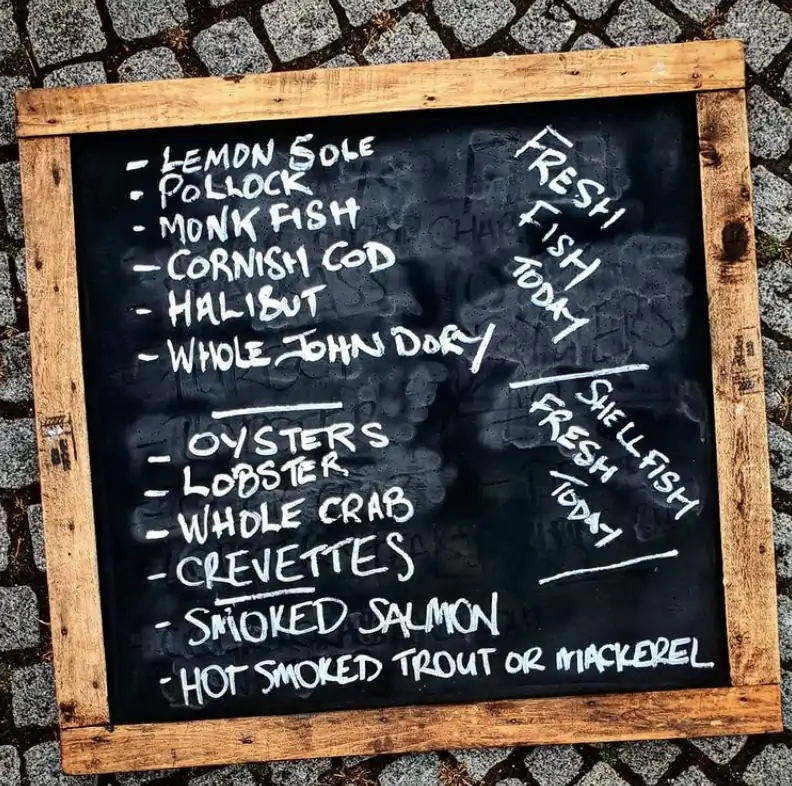 - LEMON SOLE
- POLLOCK
- MONK FISH
- CORNISH COD
- HALIBUT
- WHOLE JOHN DORY
FRESH
FISH
TODAY
- OYSTERS
- LOBSTER
- WHOLE CRAB
- CREVETTES
SHELLFISH
FRESH
TODAY
- SMOKED SALMON
- HOT SMOKED TROUT OR MACKEREL